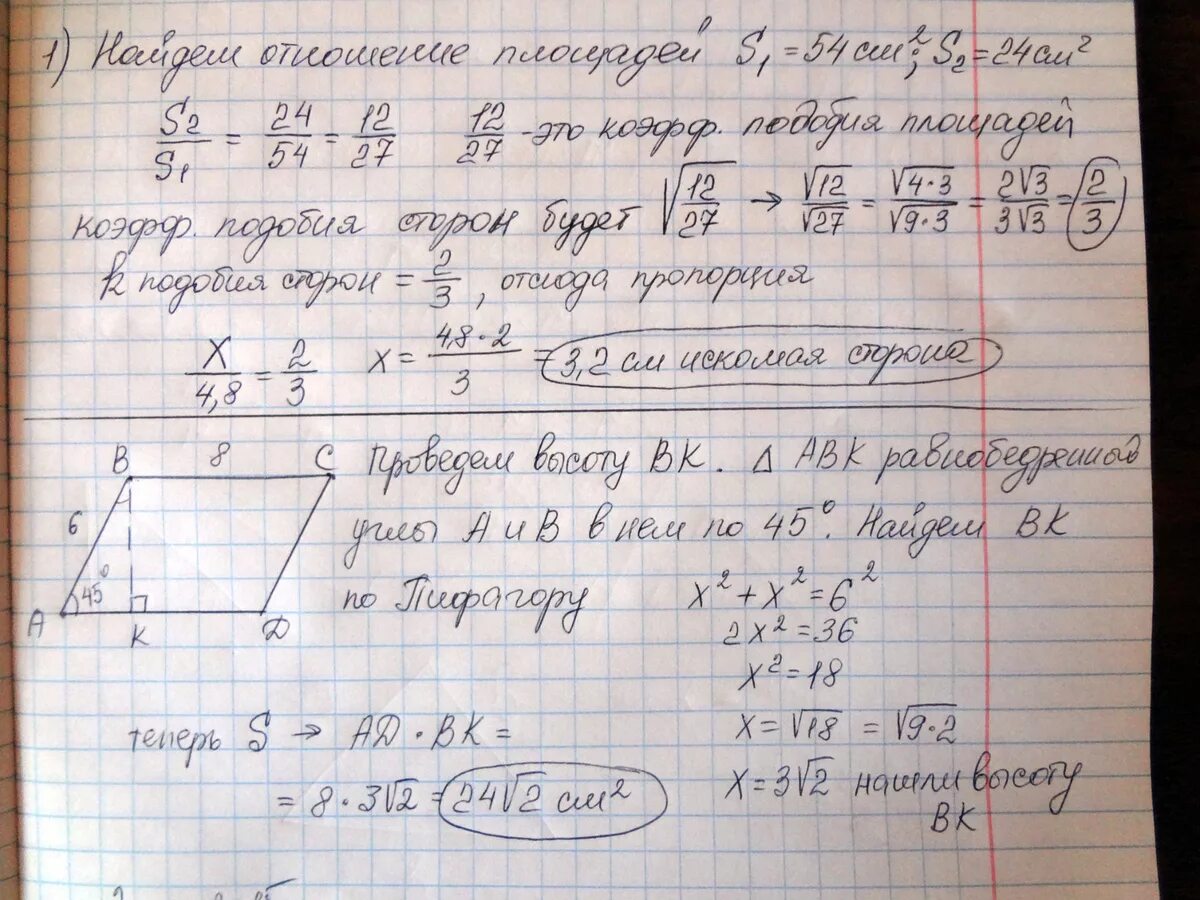 1) Найдем отношение площадей S₁ = 54 см²; S₂ = 24 см²
S₂/S₁ = 24/54 = 12/27 12/27 - это коэфф. подобия площадей
коэфф. подобия сторон будет √(12/27) → √12/√27 = √(4·3)/√(9·3) = 2√3/3√3 = 2/3
k подобия сторон = 2/3, отсюда пропорция
X/4,8 = 2/3 x = (4,8·2)/3 = 3,2 см искомая сторона
B 8 C
6
45°
A K D
Проведем высоту BK. Δ ABK равнобедренный
углы A и B в нем по 45°. Найдем BK
по Пифагору x² + x² = 6²
2x² = 36
x² = 18
теперь S → AD · BK = x = √18 = √(9·2)
= 8 · 3√2 = 24√2 см² x = 3√2 нашли высоту
BK